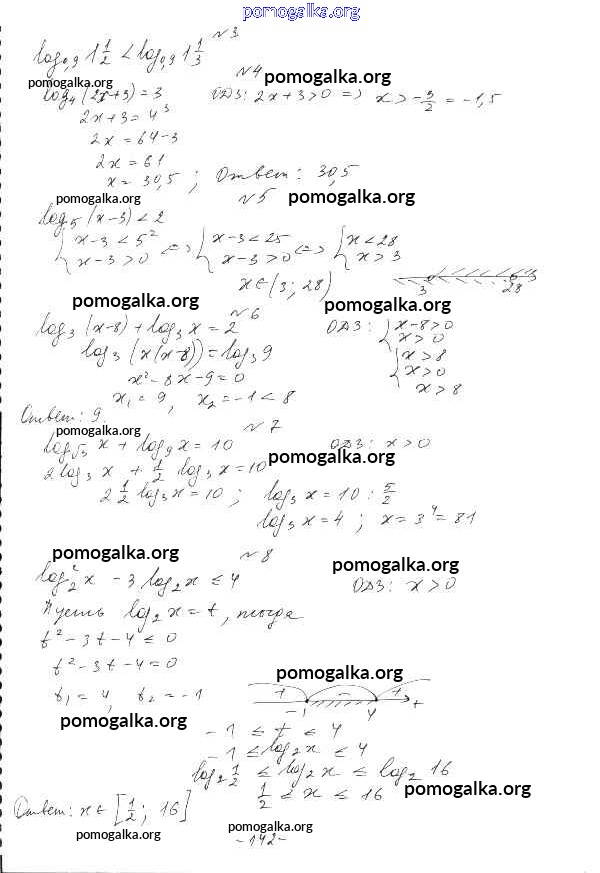 pomogalka.org
№3
log₀,₉ 1 1/2 < log₀,₉ 1 1/3
№4
pomogalka.org pomogalka.org
log₄(2x+3) = 3 ОДЗ: 2x+3>0 => x > -3/2 = -1,5
2x+3 = 4³
2x = 64-3
2x = 61
x = 30,5 ; Ответ: 30,5
pomogalka.org №5 pomogalka.org
log₅(x-3) < 2
{ x-3 < 5² <=> { x-3 < 25 <=> { x < 28
x-3 > 0 x-3 > 0 x > 3
x ∈ (3; 28) 3 28
pomogalka.org №6 pomogalka.org
log₃(x-8) + log₃ x = 2 ОДЗ: { x-8>0
x>0
log₃(x(x-8)) = log₃ 9 { x>8
x>0
x² - 8x - 9 = 0 x>8
x₁ = 9, x₂ = -1 < 8
Ответ: 9.
pomogalka.org №7 pomogalka.org
log√₃ x + log₉ x = 10 ОДЗ: x>0
2 log₃ x + 1/2 log₃ x = 10
2 1/2 log₃ x = 10 ; log₃ x = 10 : 5/2
log₃ x = 4 ; x = 3⁴ = 81
pomogalka.org №8 pomogalka.org
log₂² x - 3 log₂ x ≤ 4 ОДЗ: x>0
Пусть log₂ x = t, тогда
t² - 3t - 4 ≤ 0
t² - 3t - 4 = 0
pomogalka.org
t₁ = 4, t₂ = -1 + - + t
-1 4
pomogalka.org
-1 ≤ t ≤ 4
-1 ≤ log₂ x ≤ 4
log₂ 1/2 ≤ log₂ x ≤ log₂ 16
1/2 ≤ x ≤ 16 pomogalka.org
Ответ: x ∈ [1/2; 16]
pomogalka.org pomogalka.org
-142-